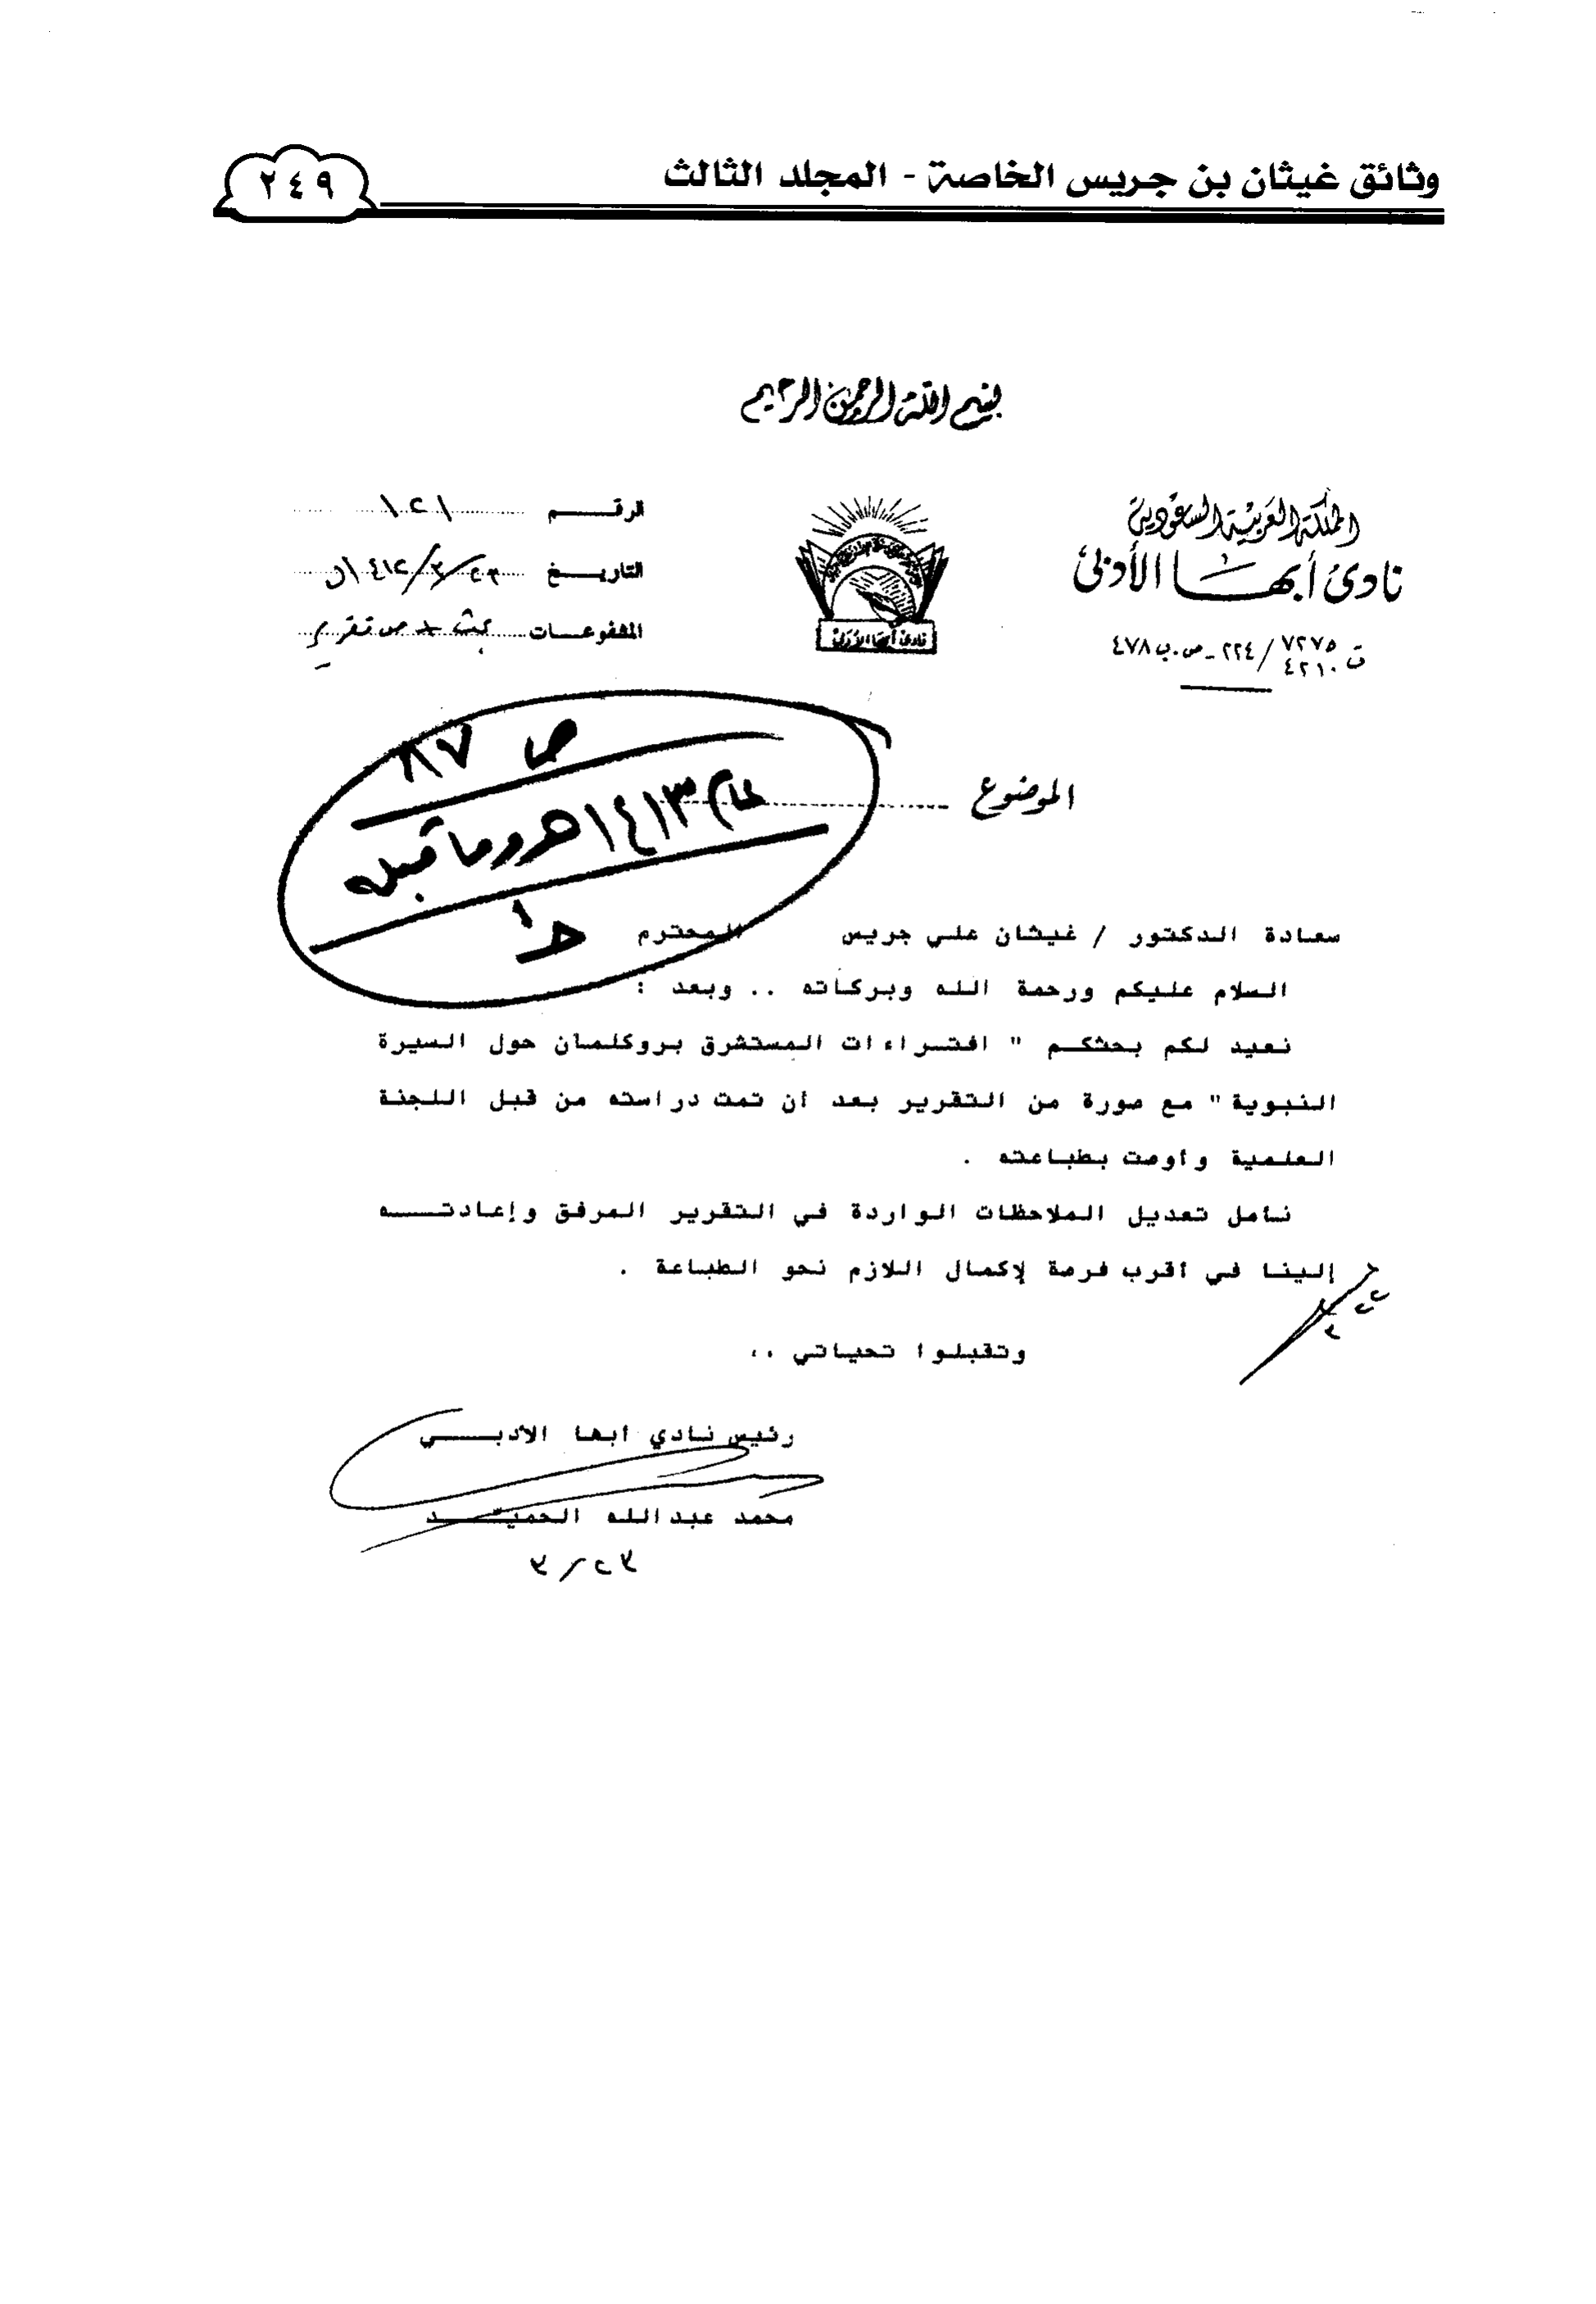 وثائق غيثان بن جريس الخاصة - المجلد الثالث
٢٤٩
بسم الله الرحمن الرحيم
المملكة العربية السعودية
نادي أبها الأدبي
ت ٧٢٧٥ / ٢٢٤ - ص.ب ٤٧٨
٤٢١٠
نادي أبها الأدبي
الرقـــــم ١٢١
التاريــــخ ٢٣/٣/١٤١٢
المشفوعـــات بحث صورة تقرير
ص ٨٧
عام ١٤١٣هـ وما قبله
الموضوع
سعادة الدكتور / غيثان علي جريس المحترم
السلام عليكم ورحمة الله وبركاته .. وبعد :
نعيد لكم بحثكـم " افتـراءات المستشرق بروكلمان حول السيرة
النبوية " مع صورة من التقرير بعد ان تمت دراسته من قبل اللجنة
العلمية واوصت بطباعته .
نامل تعديل الملاحظات الواردة في التقرير المرفق وإعادتــــه
إلينا في اقرب فرصة لإكمال اللازم نحو الطباعة .
وتقبلوا تحياتي ،،
رئيس نادي ابها الادبـــــي
محمد عبدالله الحميـــــد
٢٣/٣